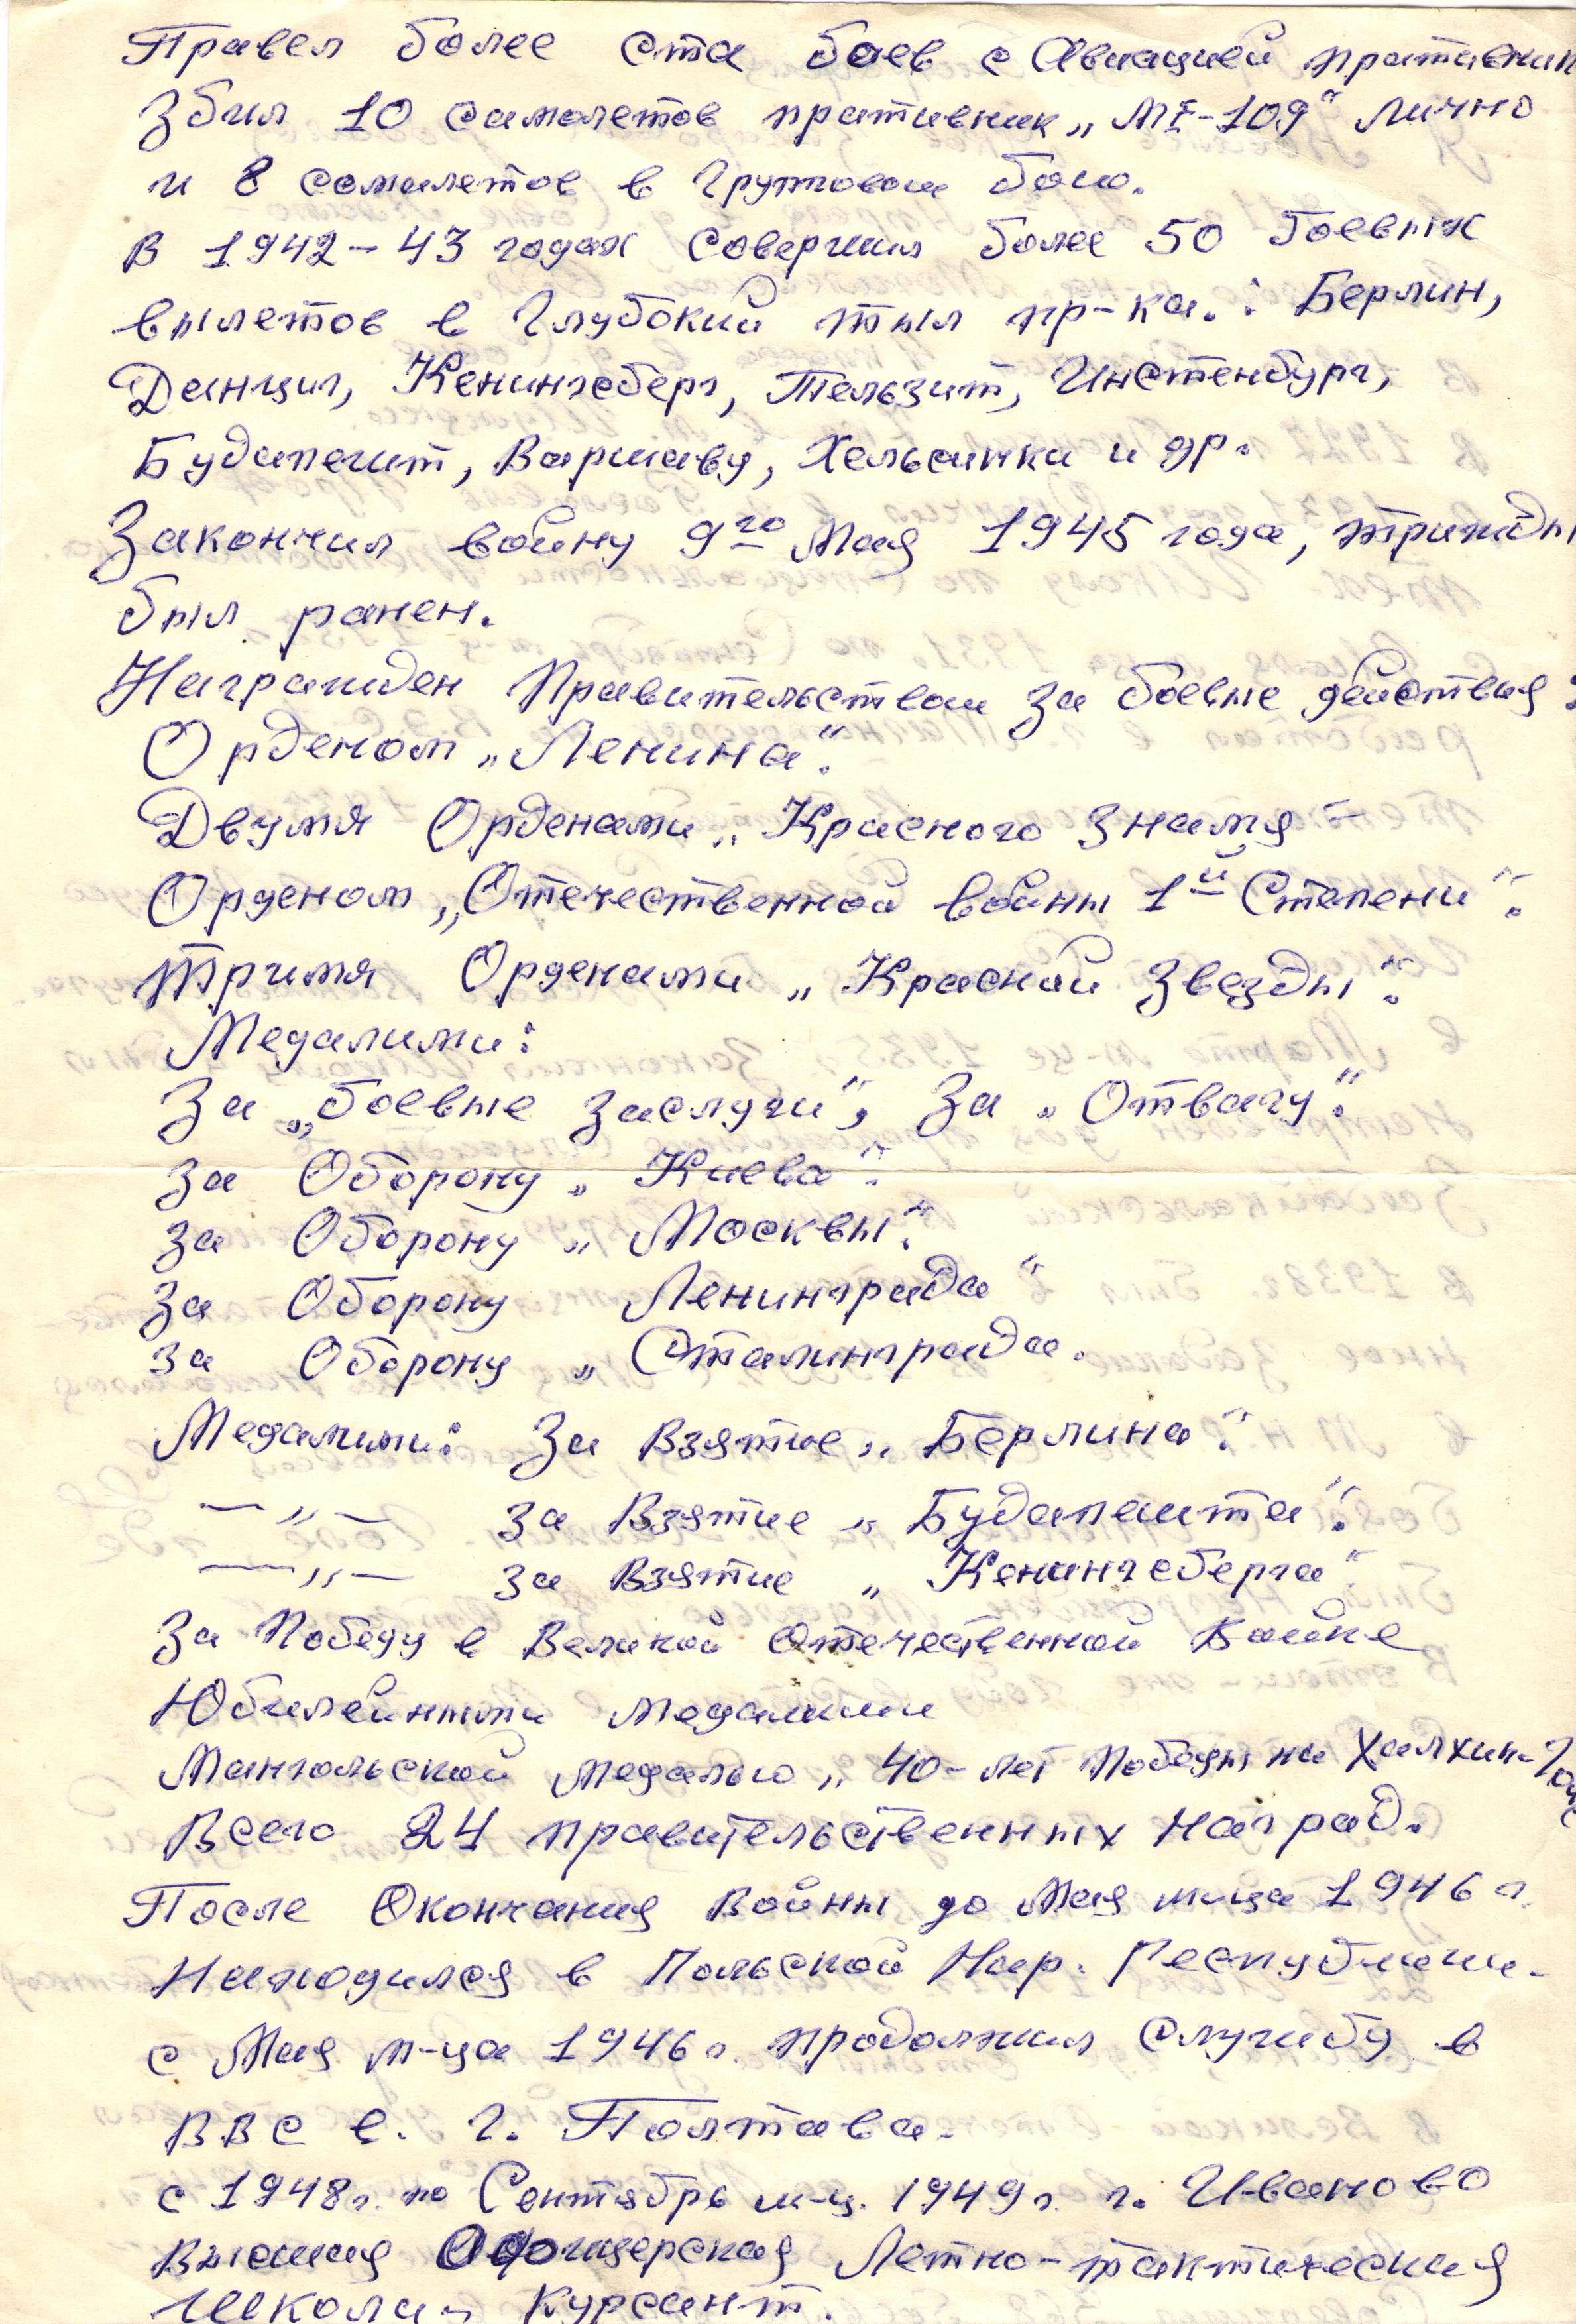 Правел более ста боев с Авиацией пративник
Збил 10 самолетов пративник „МЕ-109" лично
и 8 самилетов в Групповом бою.
В 1942-43 годах Совершил более 50 боевых
вылетов в Глубокий тыл пр-ка.: Берлин,
Данциг, Кенингсберг, Тельзит, Инстенбург,
Будапешт, Варшаву, Хельсинки и др.
Закончил войну 9го Мая 1945 года, трижды
был ранен.
Награжден Правительством за боевые действия:
Орденом „Ленина".
Двумя Орденами „Красного Знамя"
Орденом „Отечественной войны 1й Степени".
Тримя Орденами „Красной Звезды".
Медалими:
За „боевые заслуги", За „Отвагу".
За Оборону „Киева".
За Оборону „Москвы".
За Оборону Ленинграда"
За Оборону „Сталинграда.
Медалими: За Взятие „Берлина".
—„— За Взятие „Будапешта".
—„— За Взятие „Кенингсберга".
За Победу в Великой Отечественной Войне
Юбилейными медалими
Мангольской медалью „40-лет Победы на Халхин-Голе
Всего 24 правительственных наград.
После Окончания Войны до Мая м-ца 1946 г.
Находился в Польской Нар. Республики.
с Мая м-ца 1946 г. продолжил Службу в
ВВС в. г. Полтава.
с 1948 г. по Сентябрь м-ц. 1949 г. г. Иваново
Высшая Офицерская Летно-тактическая
Школа, Курсант.